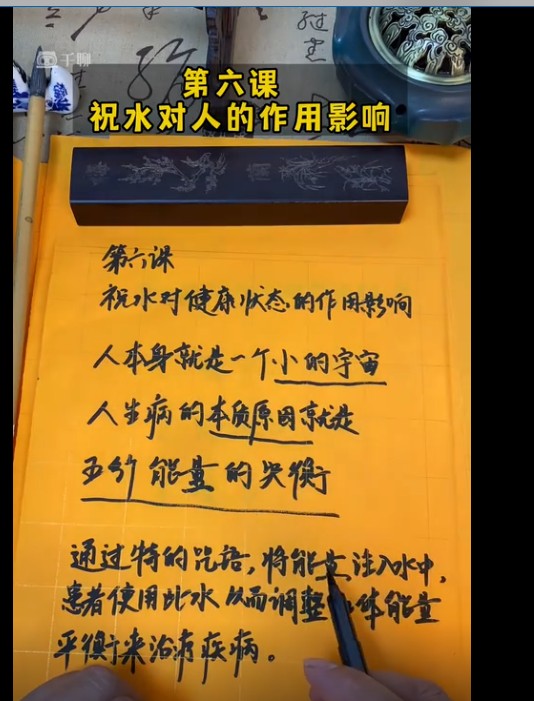 千聊
第六课
祝水对人的作用影响
第六课
祝水对健康状态的作用影响
人本身就是一个小的宇宙
人生病的本质原因就是
五行能量的失衡
通过特的咒语,将能量注入水中,
患者使用此水从而调整体能量
平衡来治疗疾病。